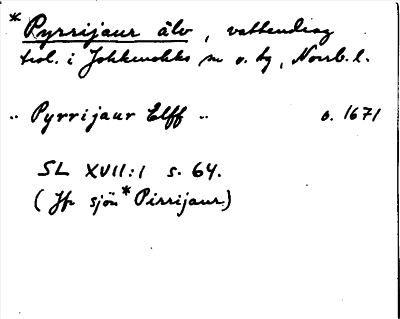 * Pyrrijaur älv, vattendrag
trol. i Jokkmokks sn o. tg, Norrb. l.
" Pyrrijaur Elff " o. 1671
SL XVII:1 s. 64.
(Jfr sjön * Pirrijaur)